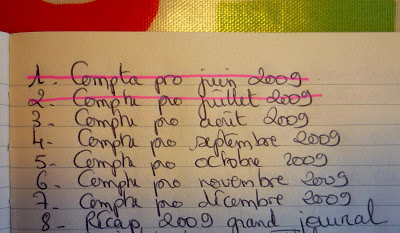 1. Compta pro juin 2009
2. Compta pro juillet 2009
3. Compta pro août 2009
4. Compta pro septembre 2009
5. Compta pro octobre 2009
6. Compta pro novembre 2009
7. Compta pro décembre 2009
8. Récap 2009 grand journal